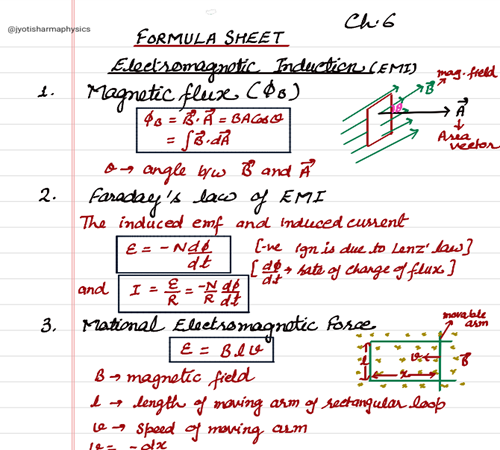 Ch.6
@jyotisharmaphysics
FORMULA SHEET
Electromagnetic Induction (EMI)
1. Magnetic flux (ϕB)
mag. field
B⃗
θ
A⃗
Area vector
ϕB = B⃗.A⃗ = BACosθ
= ∫B⃗.dA⃗
θ → angle b/w B⃗ and A⃗
2. Faraday's law of EMI
The induced emf and induced current
ε = -N dϕ/dt [-ve sign is due to Lenz' law]
[dϕ/dt → rate of change of flux]
and I = ε/R = -N/R dϕ/dt
3. Motional Electromagnetic Force
movable arm
ε = Blv
l v x B⃗
B → magnetic field
l → length of moving arm of rectangular loop
v → speed of moving arm
v = -dx